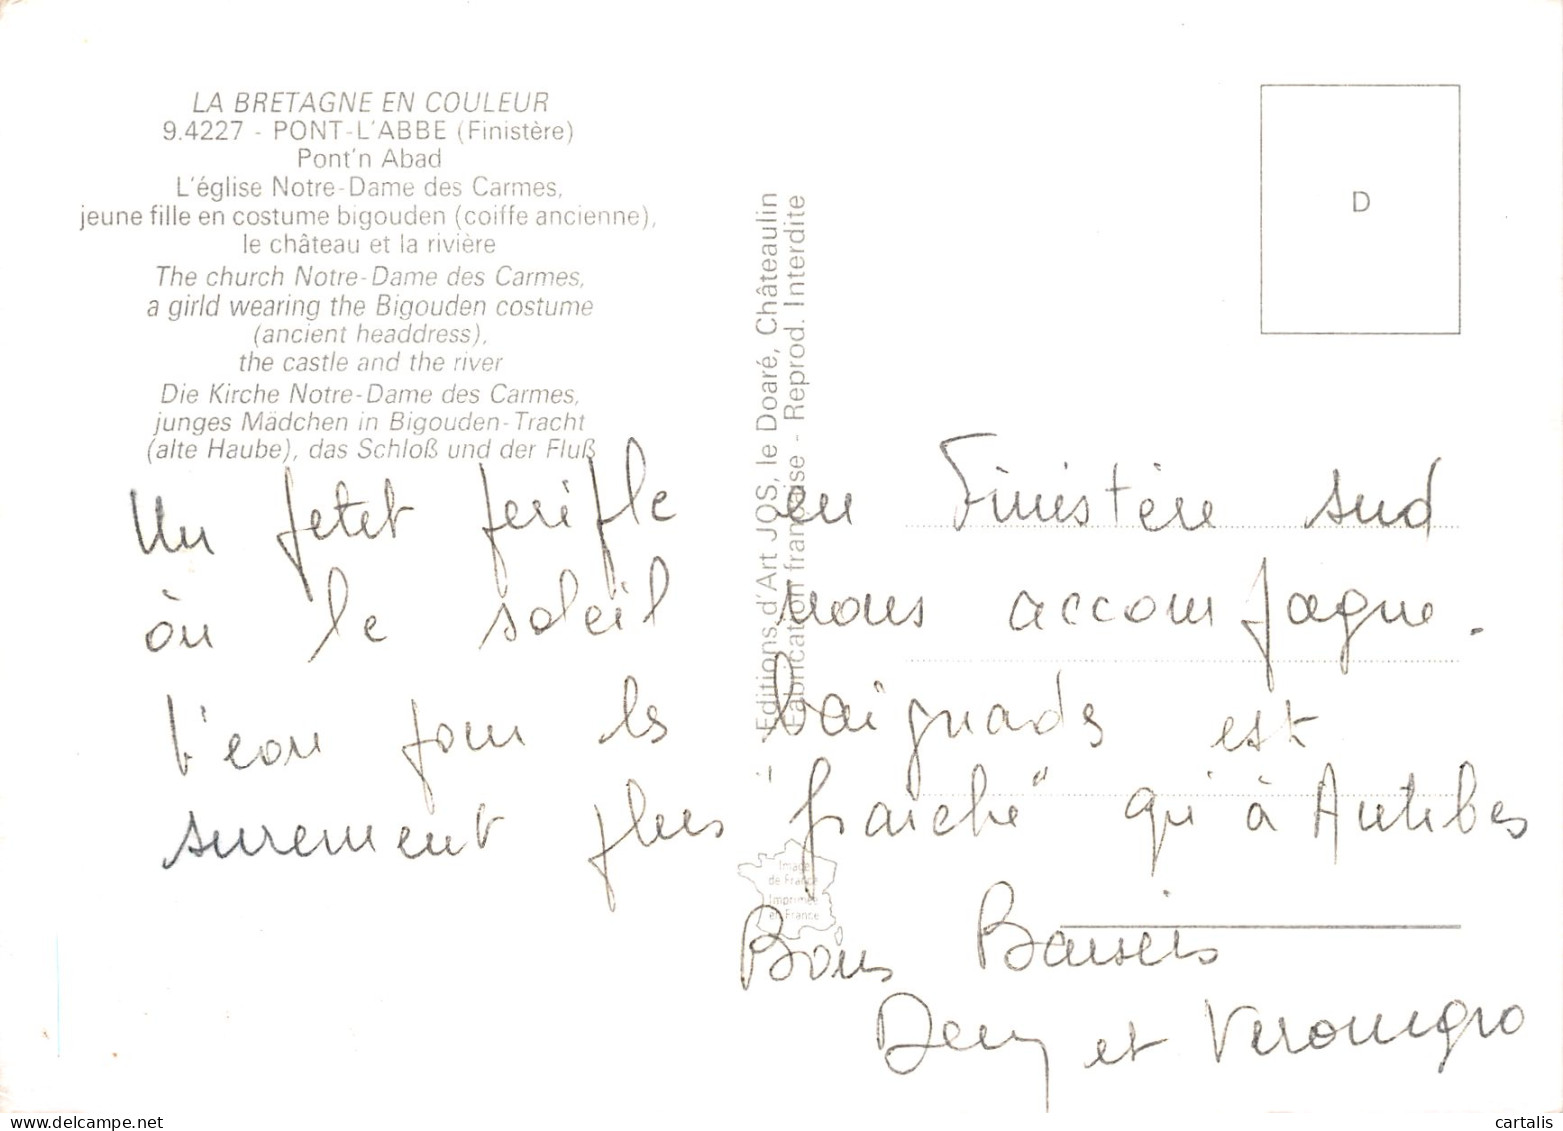 LA BRETAGNE EN COULEUR
9.4227 - PONT-L'ABBE (Finistère)
Pont'n Abad
L'église Notre-Dame des Carmes,
jeune fille en costume bigouden (coiffe ancienne),
le château et la rivière
The church Notre-Dame des Carmes,
a girld wearing the Bigouden costume
(ancient headdress),
the castle and the river
Die Kirche Notre-Dame des Carmes,
junges Mädchen in Bigouden-Tracht
(alte Haube), das Schloß und der Fluß
Editions d'Art JOS, le Doaré, Châteaulin
Fabrication française - Reprod. Interdite
D
Un petit périple en Finistère sud
où le soleil nous accompagne.
L'eau pour les baignades est
surement plus "fraiche" qu'à Antibes
Image
de France
Imprimée
en France
Bons Baisers
et
cartalis